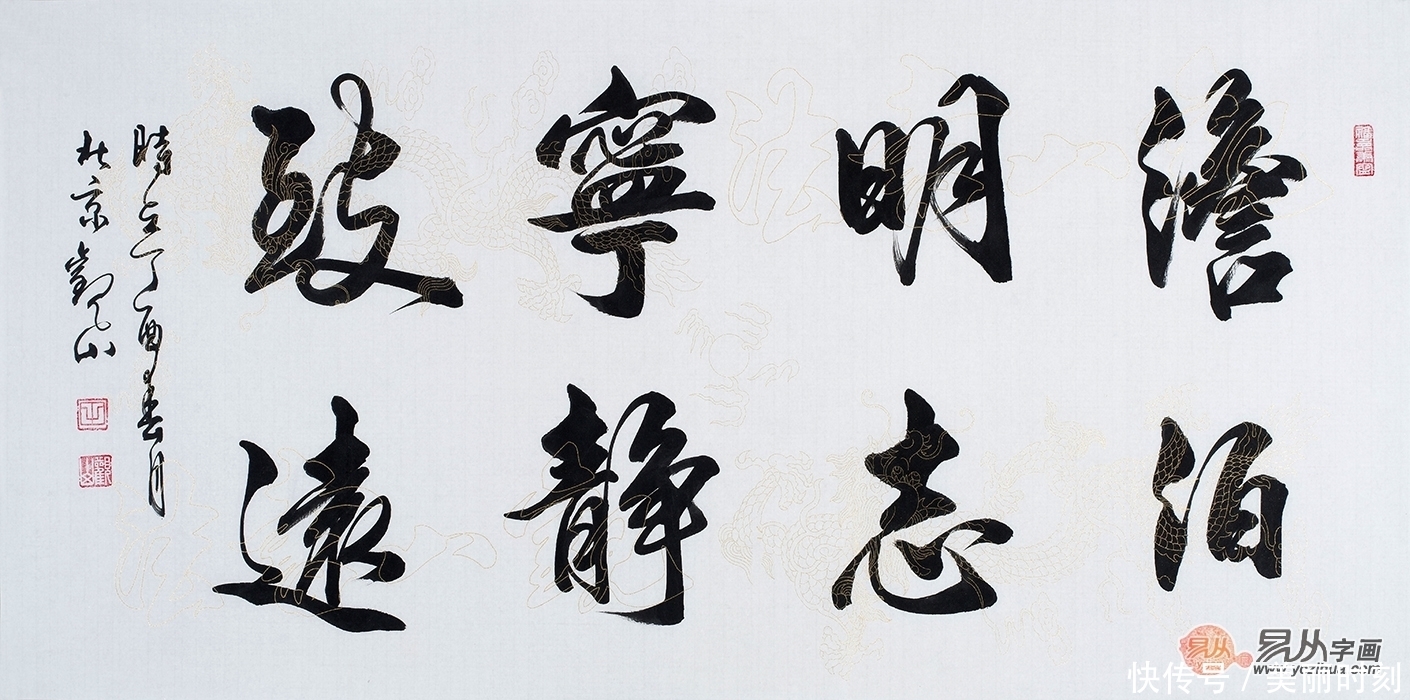 澹泊
明志
寧静
致遠
時在丁酉春月
於京觀山
易从字画
www.yczihua.com
快传号 / 美丽时刻